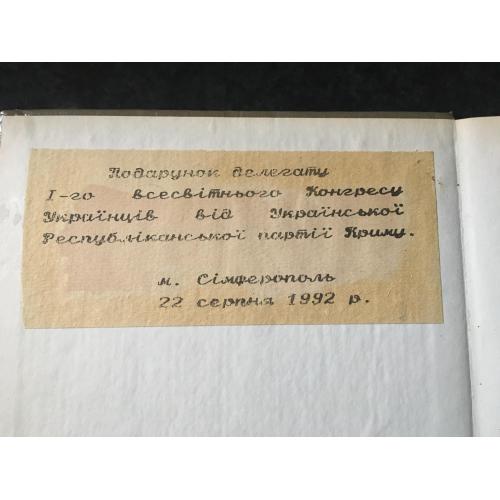 Подарунок делегату
I-го всесвітнього Конгресу
Українців від Української
Республіканської партії Криму.
м. Сімферополь
22 серпня 1992 р.